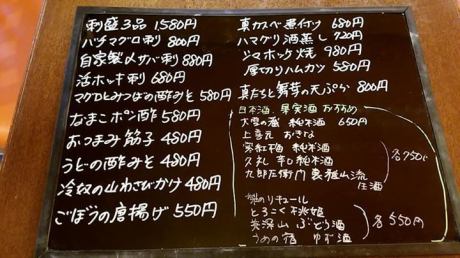 刺盛3品 1580円
バチマグロ刺 800円
自家製〆サバ刺 880円
活ホッキ刺 680円
マグロとみつばの酢みそ 580円
なまこポン酢 580円
おつまみ筋子 480円
うどの酢みそ 480円
冷奴の山わさびかけ 480円
ごぼうの唐揚げ 550円
真カスベ煮付け 680円
ハマグリ酒蒸し 720円
シマホッケ焼 980円
厚切りハムカツ 580円
真たちと舞茸の天ぷら 800円
日本酒、果実酒 おすすめ
大雪の蔵 純米酒 650円
上喜元 おきな
寒紅梅 純米酒
久礼 辛口純米酒
九郎左衛門 裏雅山流
各750円
リキュール
とろこく
奥深山 ぶどう酒
うめの宿 ゆず酒
各550円